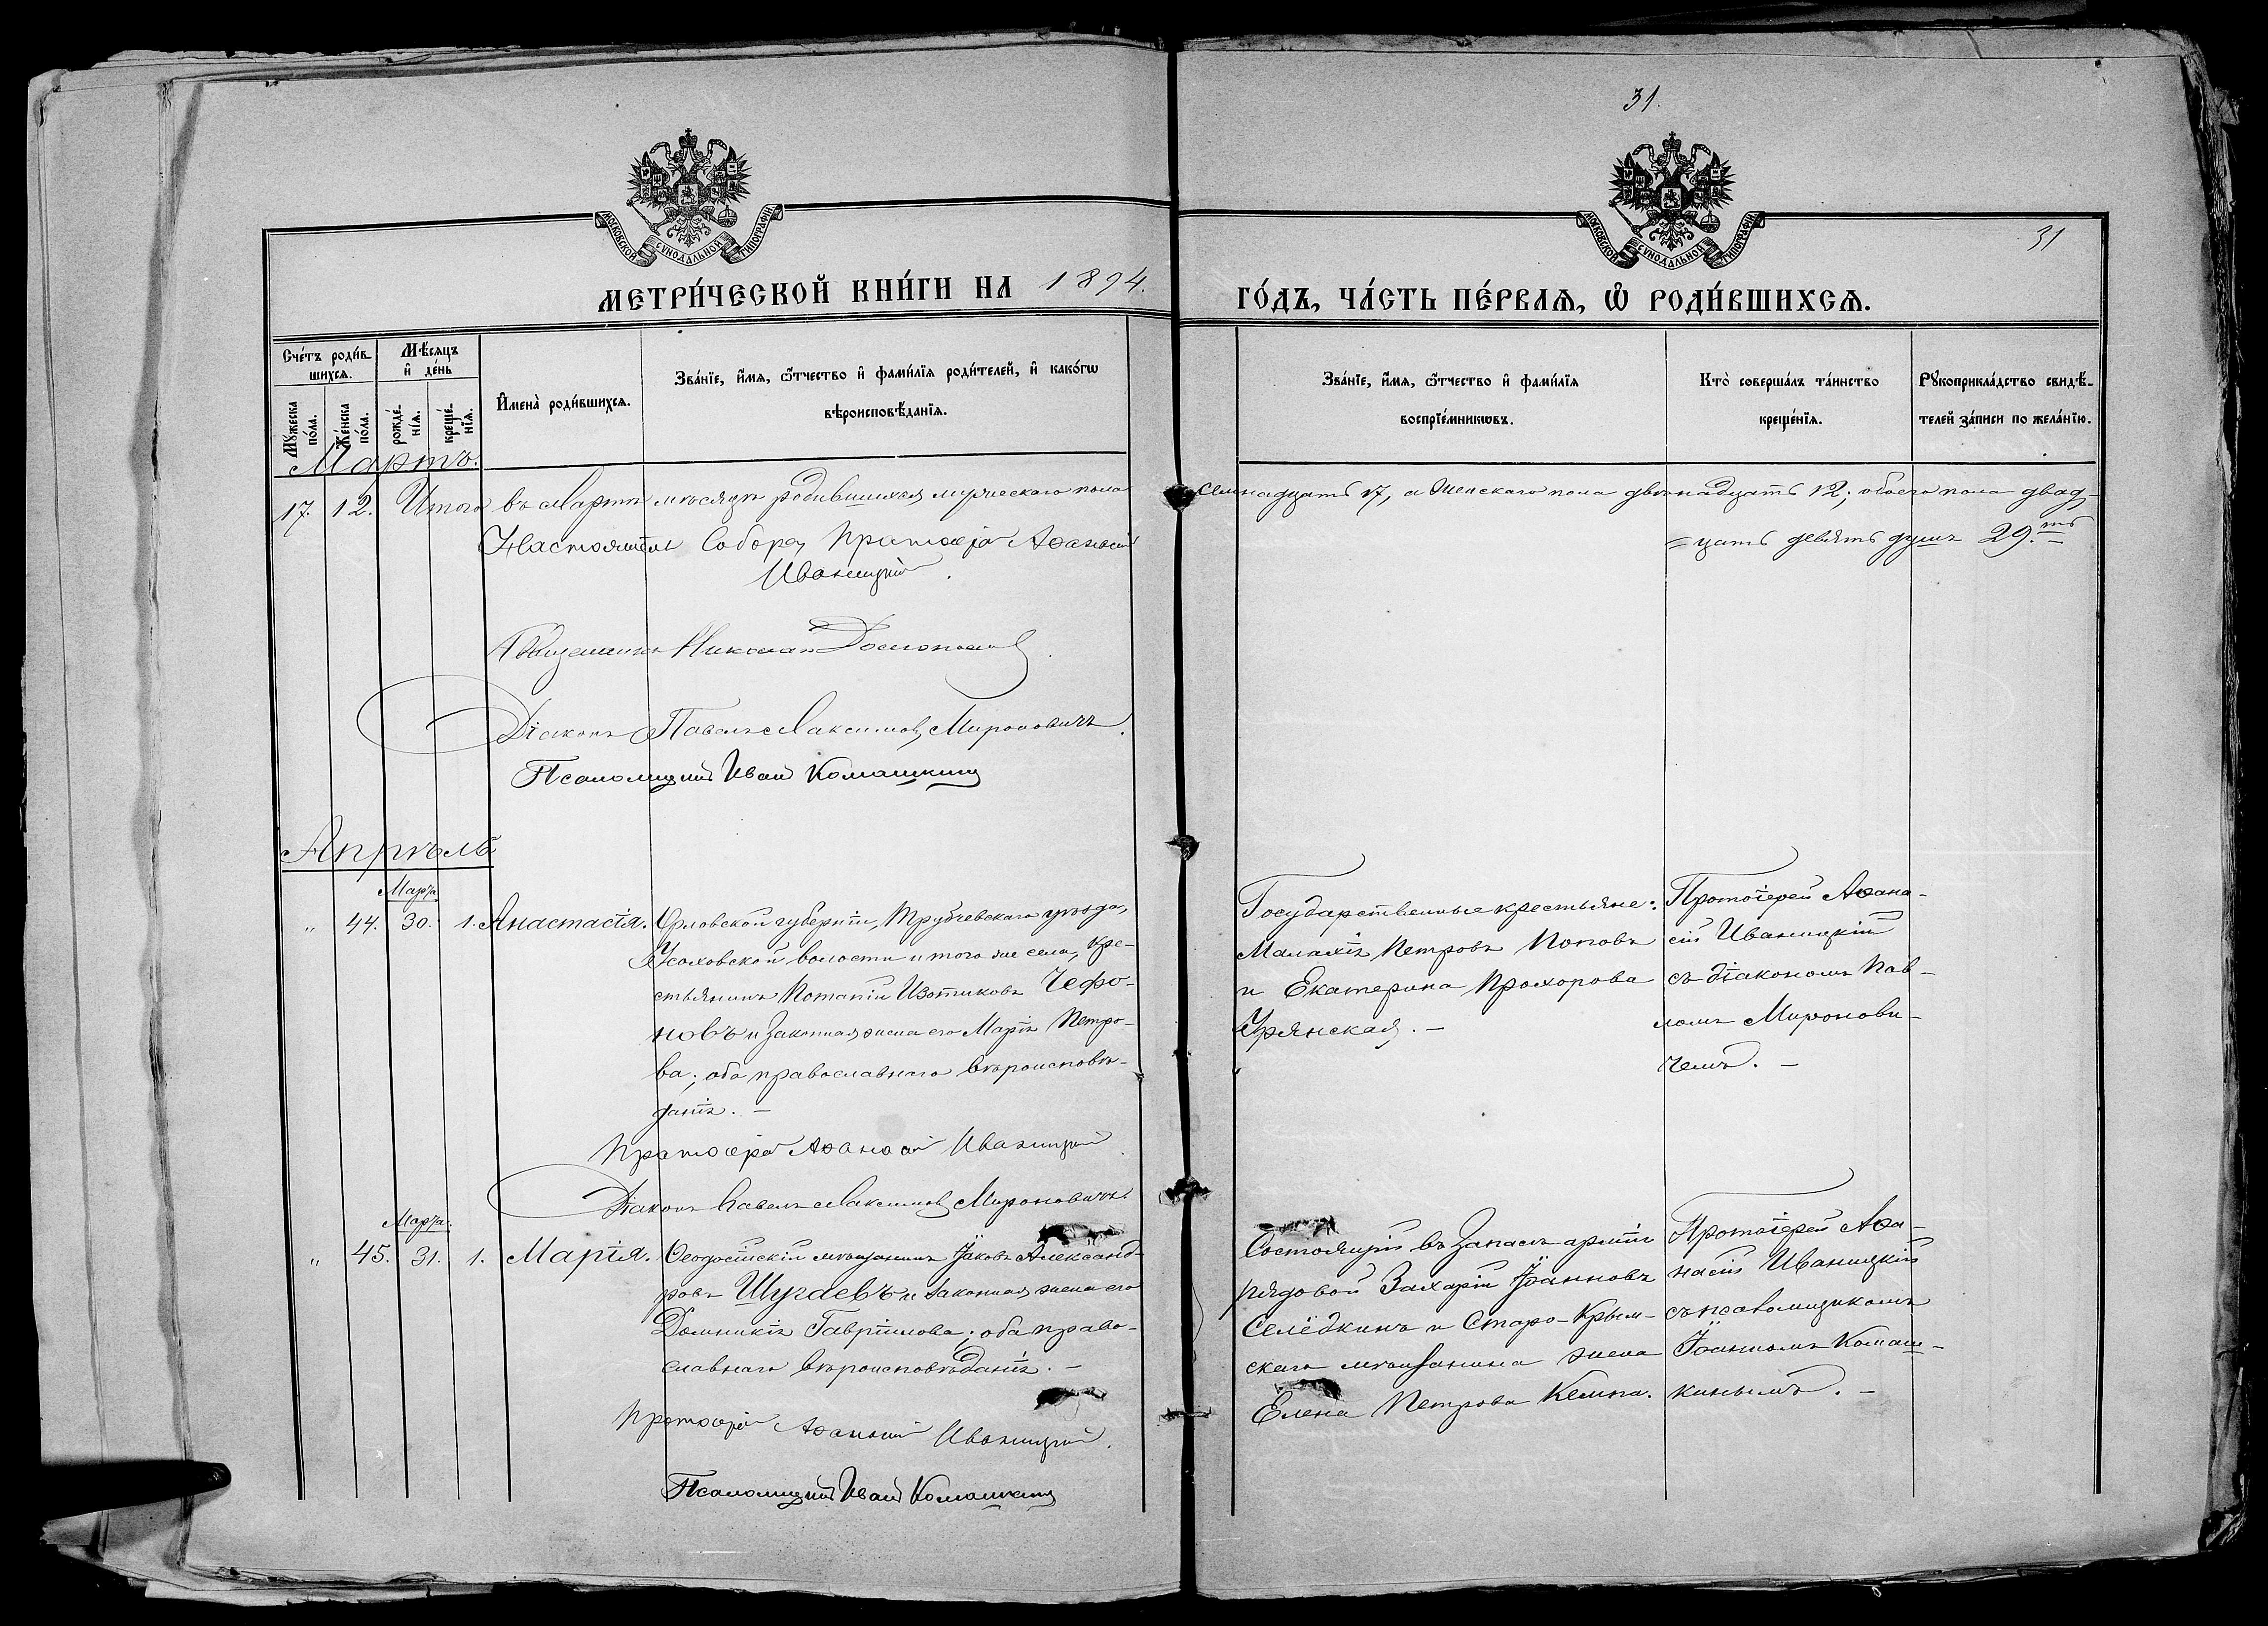 31.
МОСКОВСКОЙ СѴНОДАЛЬНОЙ ТИПОГРАФІИ
МОСКОВСКОЙ СѴНОДАЛЬНОЙ ТИПОГРАФІИ
31
МЕТРИ́ЧЕСКОЙ КНИ́ГИ НА 1894. ГО́ДЪ, ЧА́СТЬ ПЕ́РВАѦ, Ѡ҆ РОДИ́ВШИХСѦ.
Сче́тъ роди́в-
шихсѧ.
Мѣ́сѧцъ
и҆ де́нь
Мꙋ́жеска
по́ла.
Же́нска
по́ла.
рожде́-
нїѧ.
креще́-
нїѧ.
И҆мена̀ роди́вшихсѧ.
Зва́нїе, и҆́мѧ, ѻ҆́тчество и҆ фами́лїѧ роди́телей, и҆ како́гѡ
вѣроисповѣ́данїѧ.
Зва́нїе, и҆́мѧ, ѻ҆́тчество и҆ фами́лїѧ
воспрїе́мникѡвъ.
Кто̀ соверша́лъ та́инство
креще́нїѧ.
Рꙋкоприкла́дство свидѣ́-
телей за́писи по жела́нїю.
Мартъ.
17. 12. Итого въ Мартѣ мѣсяцѣ родившихся мужескаго пола семнадцать 17, а женскаго пола двѣнадцать 12; обоего пола двад-
=цать девять душъ 29.ть
Настоятель Собора, Протоіерей Аѳанасій
Иваницкій.
Священникъ Николай
Діаконъ Павелъ Максимов. Мироновичъ.
Псаломщикъ Иванъ Комашкинъ
Апрѣль
Марта
" 44. 30. 1. Анастасія. Орловской губерніи, Трубчевскаго уѣзда,
Усоховской волости и того же села, кре-
стьянинъ Потапій Изотиковъ Чефо-
новъ и законная жена его Марія Петро-
ва; оба православнаго вѣроисповѣ-
данія. –
Государственные крестьяне:
Малахія Петровъ Поповъ
и Екатерина Прохорова
Урянская. –
Протоіерей Аѳана-
сій Иваницкій
съ діакономъ Пав-
ломъ Миронови-
чемъ. –
Протоіерей Аѳанасій Иваницкій
Діаконъ Павелъ Максимов. Мироновичъ.
Марта.
" 45. 31. 1. Марія. Ѳеодосійскій мѣщанинъ Іаковъ Александ-
ровъ Шугаевъ и законная жена его
Домникія Гавріилова; оба право-
славнаго вѣроисповѣданія. –
Состоящій въ запасѣ арміи
рядовой Захарій Іоанновъ
Селёдкинъ и Старо-Крым-
скаго мѣщанина жена
Елена Петрова Кемпа.
Протоіерей Аѳа-
насій Иваницкій
съ псаломщикомъ
Іоанномъ Комаш-
кинымъ. –
Протоіерей Аѳанасій Иваницкій.
Псаломщикъ Иванъ Комашкинъ